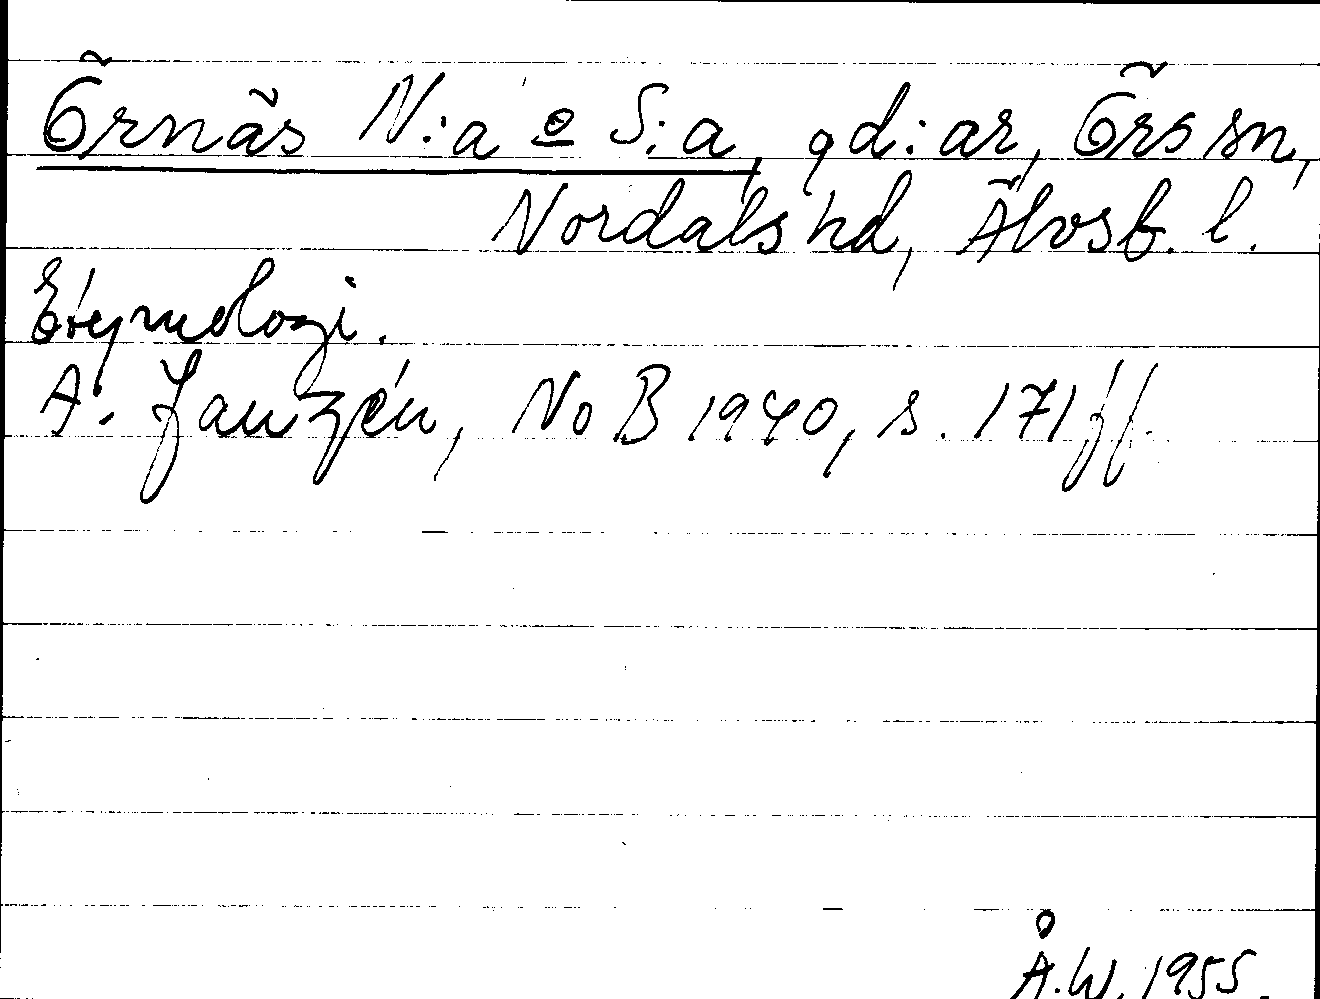 Örnäs N:a o S:a, gd:ar, Örs sn,
Nordals hd, Älvsb. l.
Etymologi.
A. Janzén, NoB 1940, s. 171 ff.
Å.W. 1955.